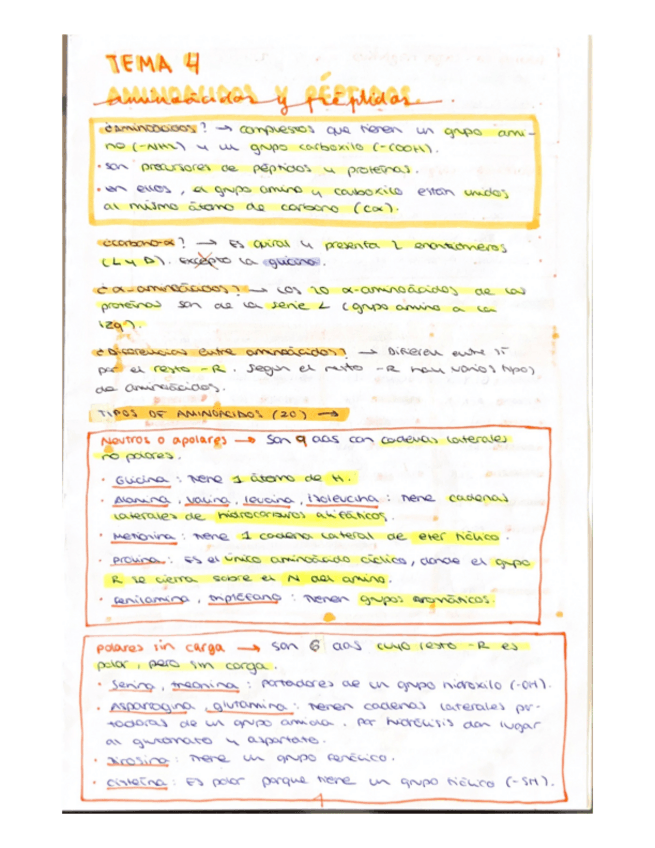 TEMA 4
aminoácidos y péptidos.
¿aminoácidos? → compuestos que tienen un grupo ami-
no (-NH2) y un grupo carboxilo (-COOH).
• son precursores de péptidos y proteínas.
• en ellos, el grupo amino y carboxilo están unidos
al mismo átomo de carbono (Cα).
¿carbono-α? → Es quiral y presenta 2 enantiómeros
(L y D). Excepto la glicina.
¿α-aminoácidos? → Los 20 α-aminoácidos de las
proteínas son de la serie L (grupo amino a la
izq).
¿Diferencias entre aminoácidos? → Difieren entre sí
por el resto -R. Según el resto -R hay varios tipos
de aminoácidos.
TIPOS DE AMINOÁCIDOS (20) →
Neutros o apolares → Son 9 aas con cadenas laterales
no polares.
• Glicina: tiene 1 átomo de H.
• Alanina, valina, leucina, isoleucina: tiene cadenas
laterales de hidrocarburos alifáticos.
• Metionina: tiene 1 cadena lateral de eter tiólico.
• Prolina: es el único aminoácido cíclico, donde el grupo
R se cierra sobre el N del amino.
• Fenilamina, triptófano: tienen grupos aromáticos.
polares sin carga → son 6 aas cuyo resto -R es
polar, pero sin carga.
• Serina, treonina: portadores de un grupo hidroxilo (-OH).
• Asparagina, glutamina: tienen cadenas laterales por-
tadoras de un grupo amida. Por hidrólisis dan lugar
al glutamato y aspartato.
• Tirosina: tiene un grupo fenólico.
• cisteína: Es polar porque tiene un grupo tiólico (-SH).
1